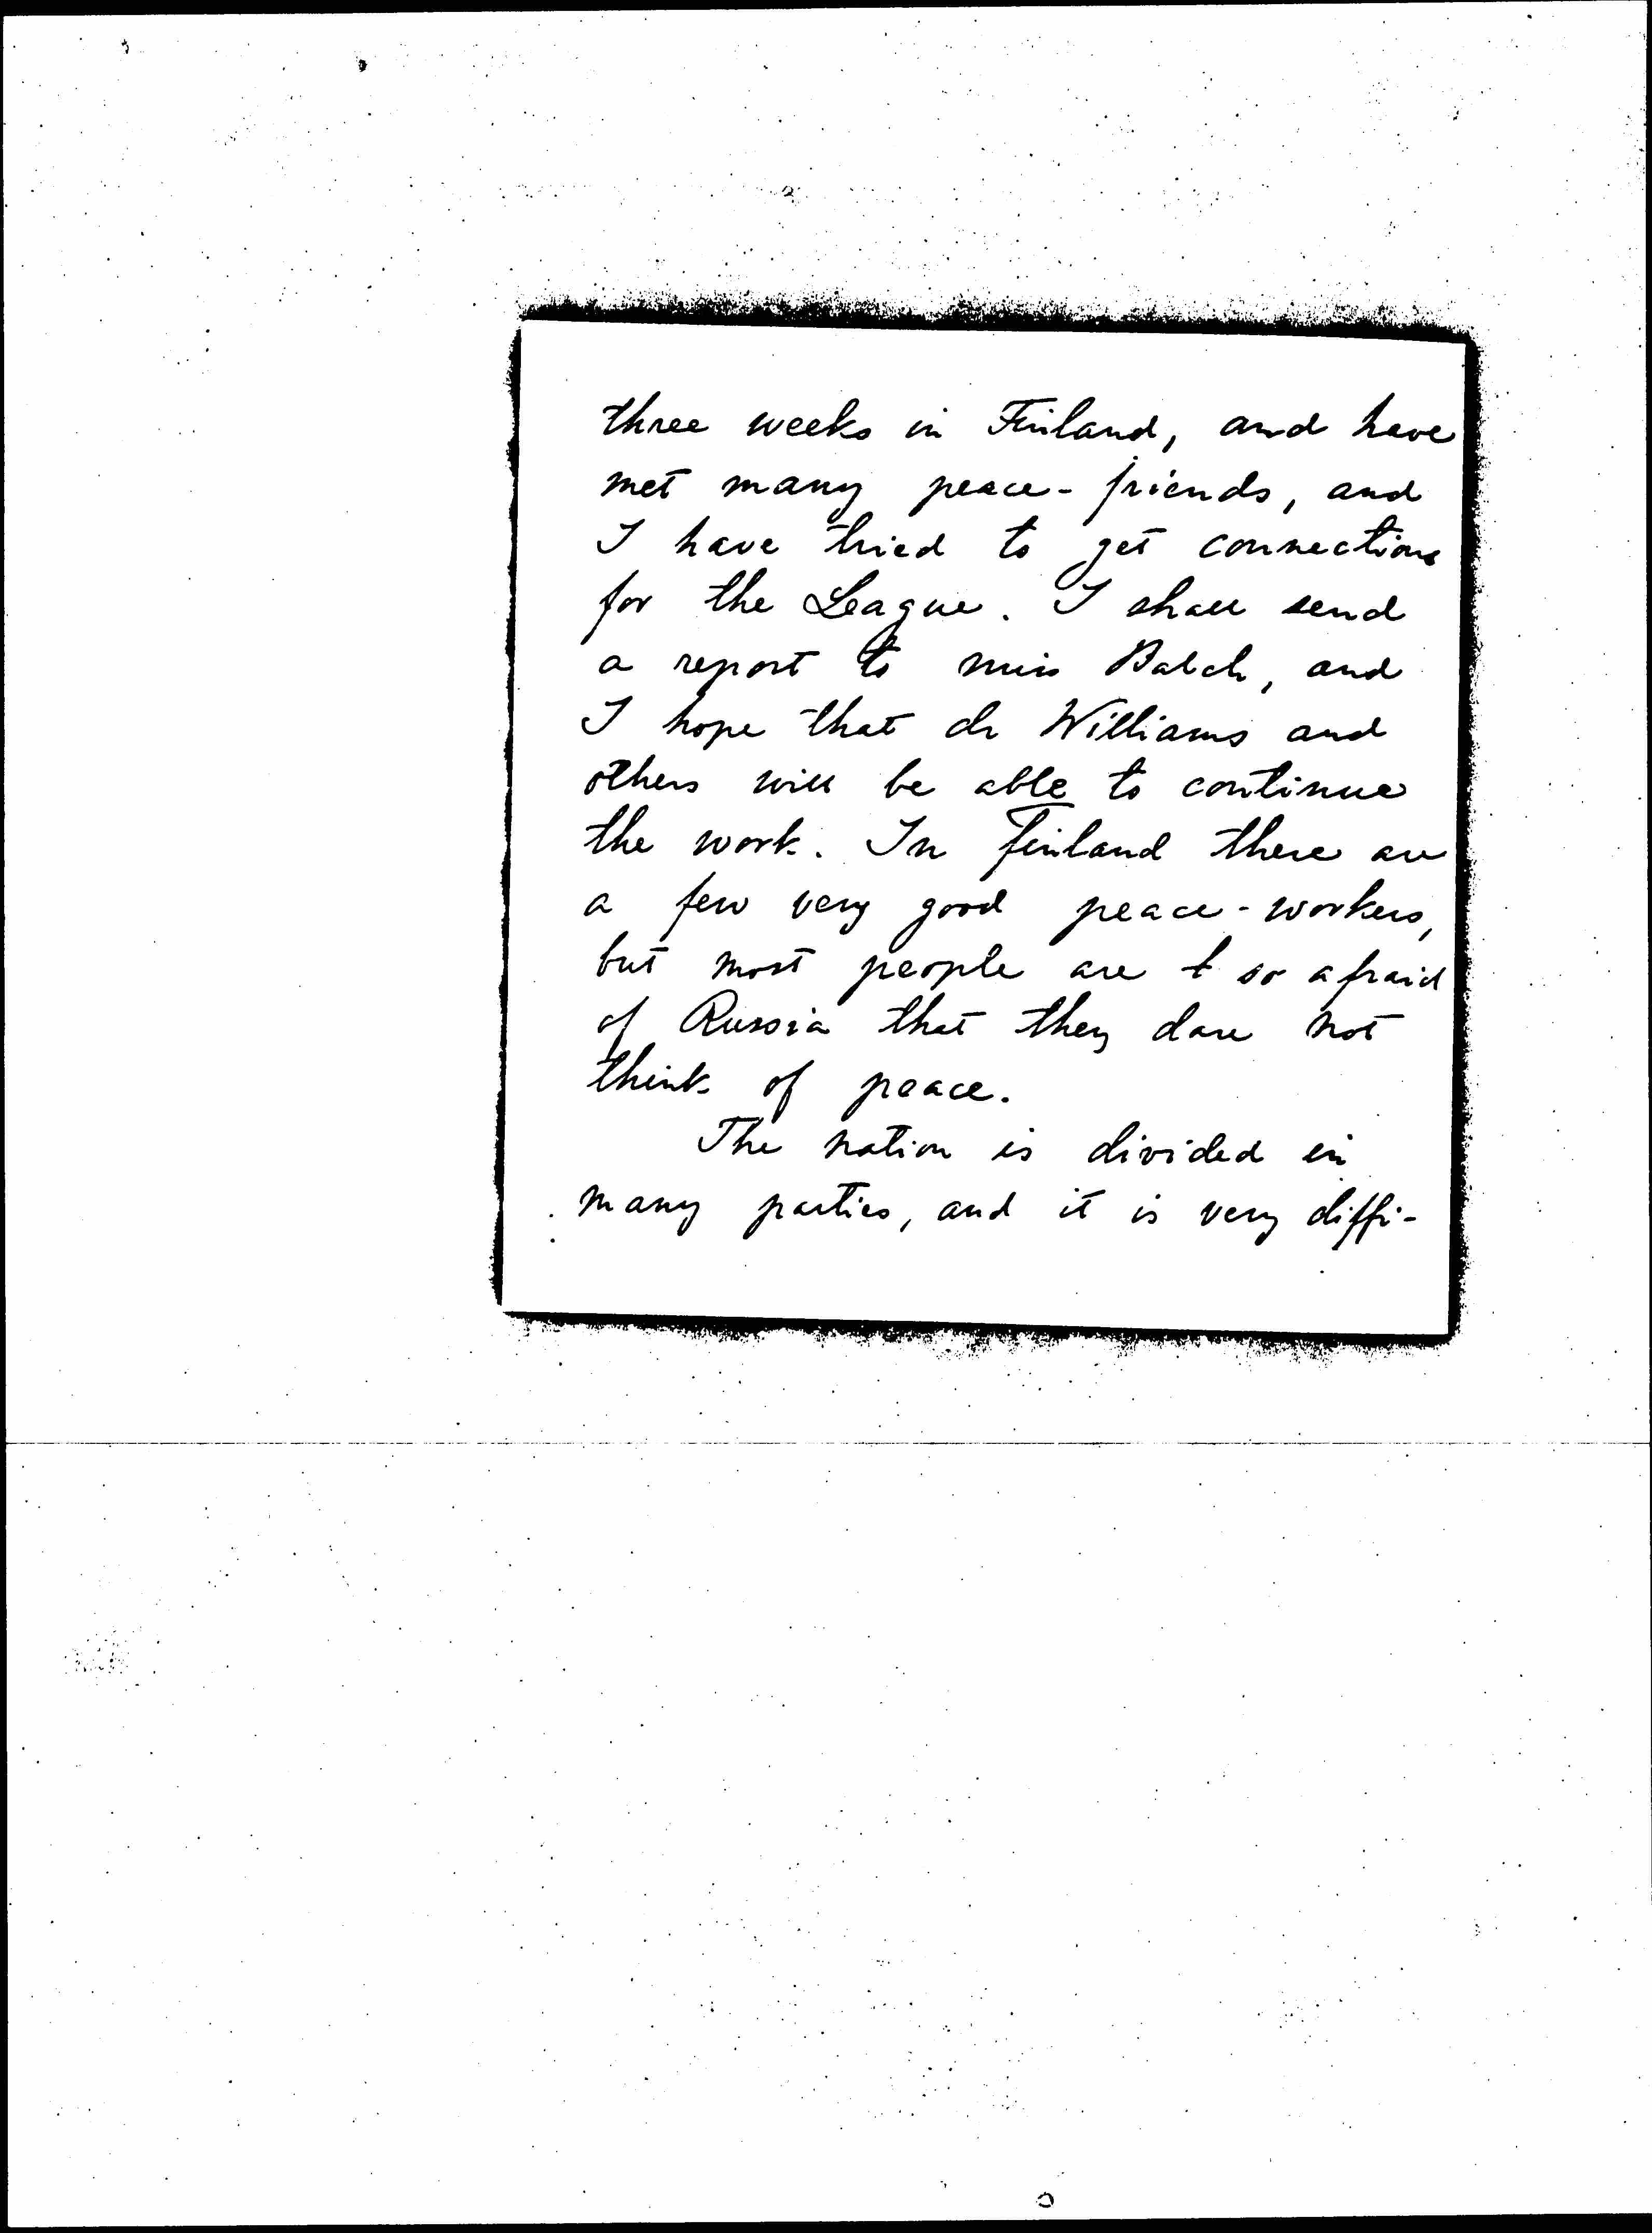 three weeks in Finland, and have
met many peace-friends, and
I have tried to get connections
for the League. I shall send
a report to miss Balch, and
I hope that dr Williams and
others will be able to continue
the work. In Finland there are
a few very good peace-workers,
but most people are t so afraid
of Russia that they dare not
think of peace.
The nation is divided in
many parties, and it is very diffi-